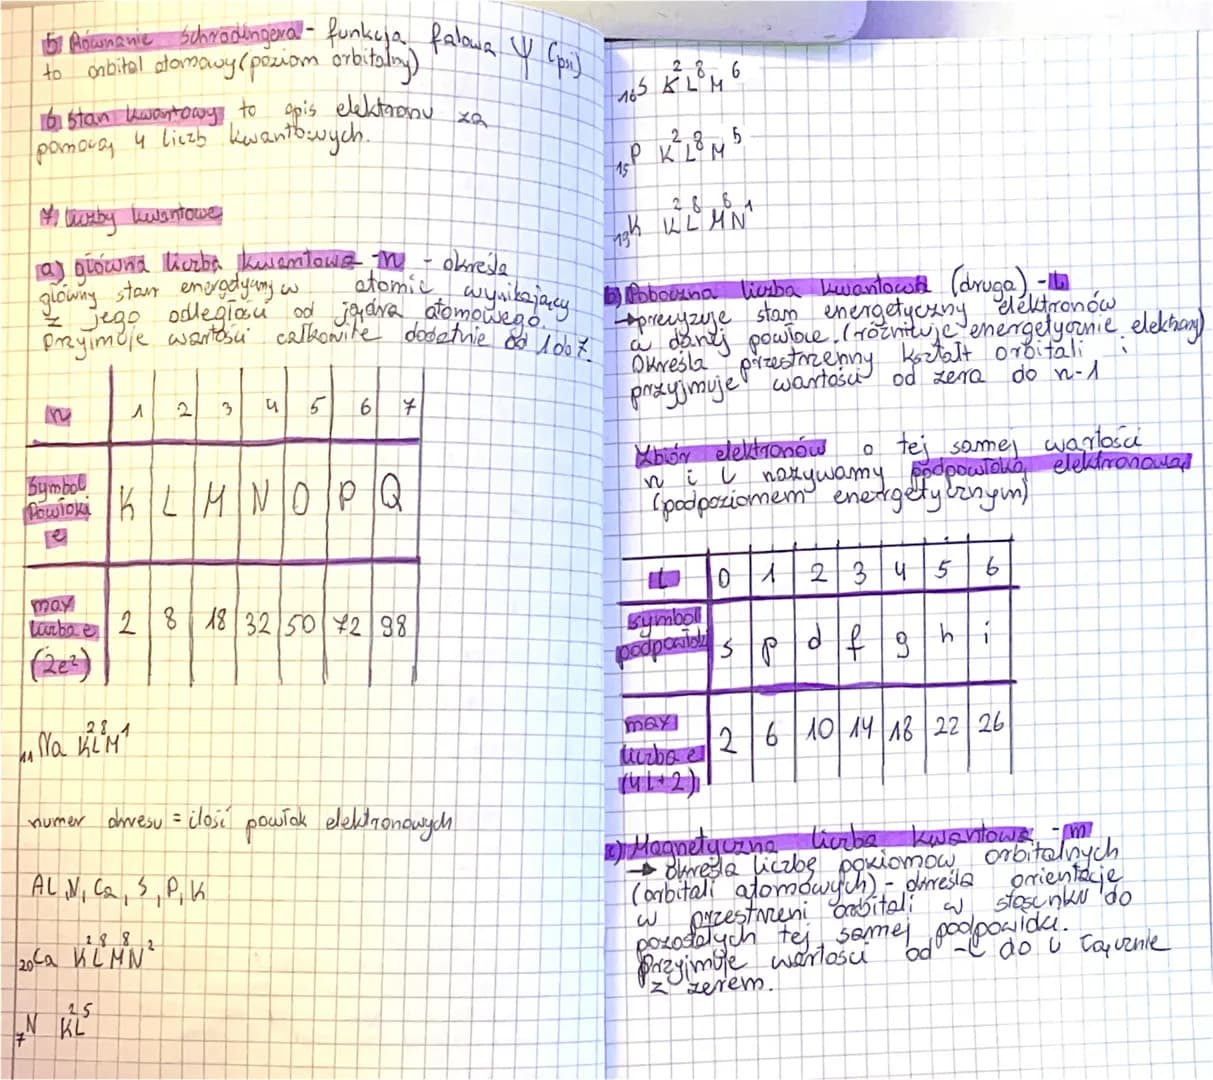 5) Równanie Schrödingera - funkcja falowa Ψ (psi)
to orbital atomowy (poziom orbitalny)
6) Stan kwantowy to opis elektronu za
pomocą 4 liczb kwantowych.
7) Liczby kwantowe
a) główna liczba kwantowa - n - określa
główny stan energetyczny w atomie wynikający
z jego odległości od jądra atomowego.
Przyjmuje wartości całkowite dodatnie od 1 do 7.
n 1 2 3 4 5 6 7
Symbol
Powłoki
e
K L M N O P Q
max
liczba e
(2e²)
2 8 18 32 50 72 98
₁₁Na K²L⁸M¹
numer okresu = ilość powłok elektronowych
Al, N, Ca, S, P, K
₂₀Ca K²L⁸M⁸N²
₇N K²L⁵
₁₆S K²L⁸M⁶
₁₅P K²L⁸M⁵
₁₉K K²L⁸M⁸N¹
b) Poboczna liczba kwantowa (druga) - l
→ precyzuje stan energetyczny elektronów
w danej powłoce. (rożnicuje energetycznie elektrony)
Określa przestrzenny kształt orbitali i
przyjmuje wartości od zera do n-1
Zbiór elektronów o tej samej wartości
n i l nazywamy podpowłoką elektronową
(podpoziomem energetycznym)
l 0 1 2 3 4 5 6
symbol
podpowłoki
s p d f g h i
max
liczba e
(4l+2)
2 6 10 14 18 22 26
c) Magnetyczna liczba kwantowa - m
→ określa liczbę poziomów orbitalnych
(orbitali atomowych) - określa orientację
w przestrzeni orbitali w stosunku do
pozostałych tej samej podpowłoki.
Przyjmuje wartości od -l do l łącznie
z zerem.